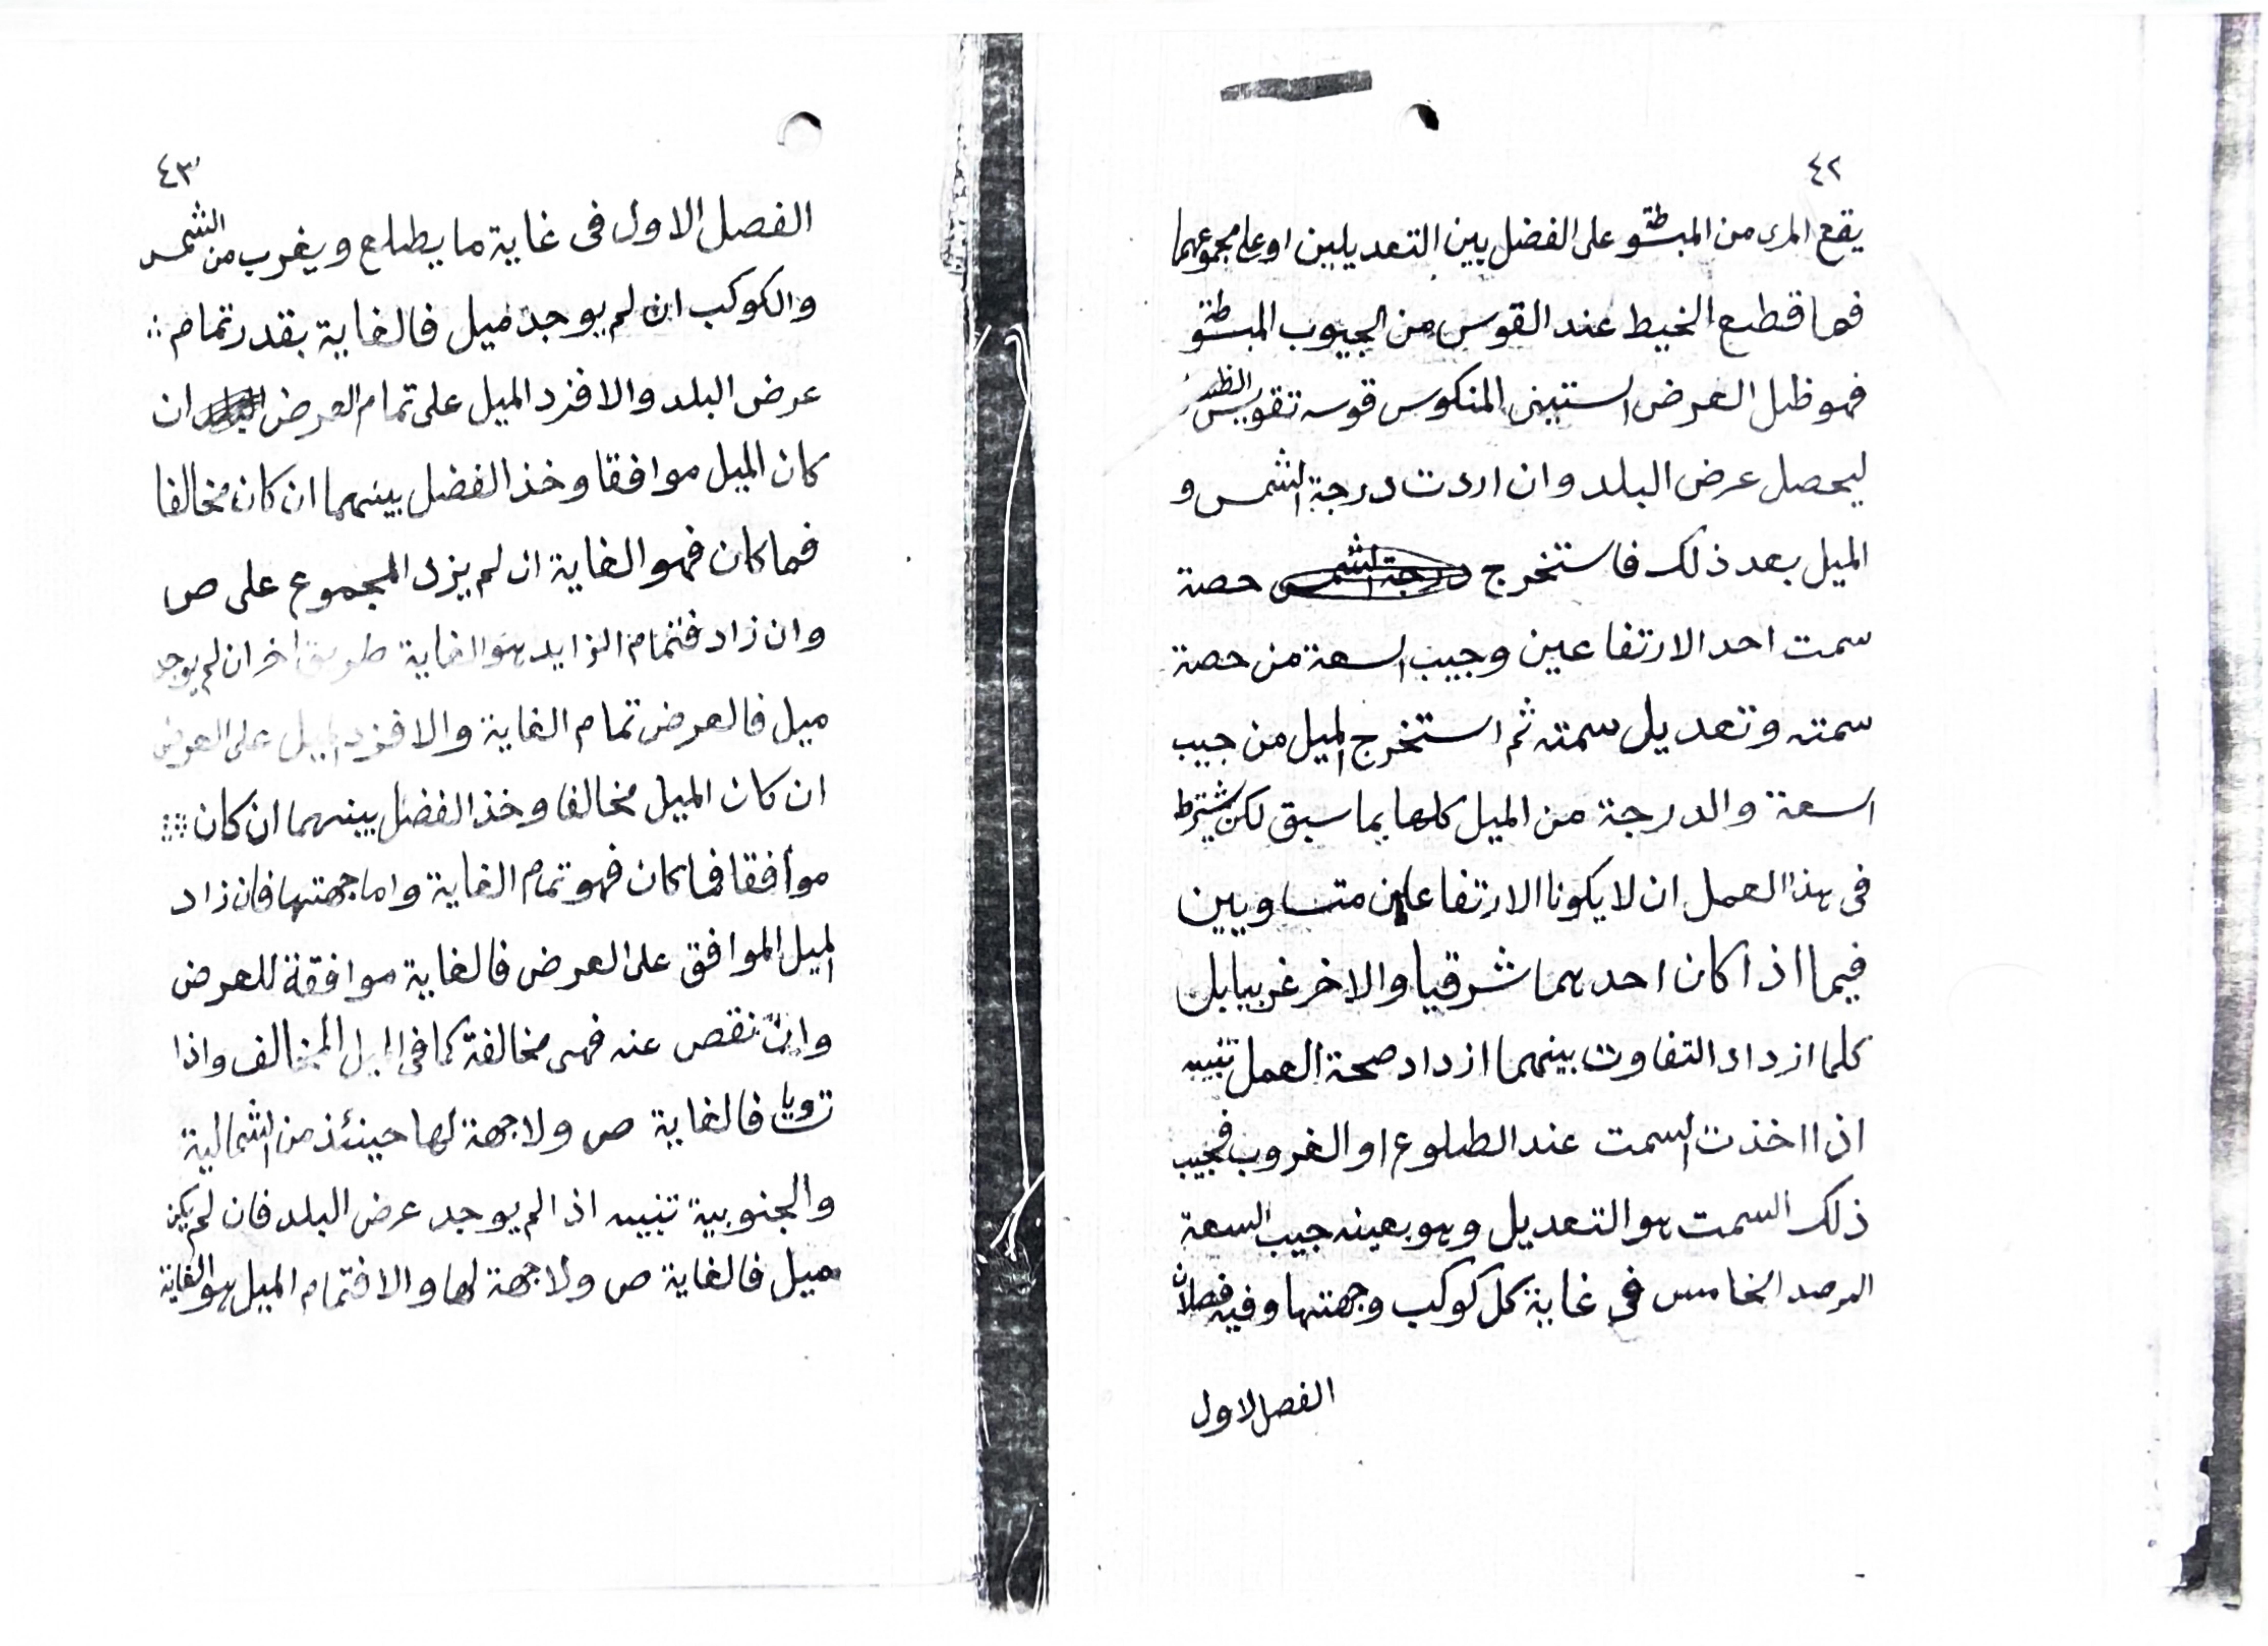 ٤٢
يقع المرى من المبسوطة على الفضل بين التعديلين او على مجموعهما
فما قطع الخيط عند القوس من الجيوب المبسوطة
فهو ظل العرض الستينى المنكوس قوسه تقويس الظل
ليحصل عرض البلد وان اردت درجة الشمس و
الميل بعد ذلك فاستخرج درجة الشمس حصة
سمت احد الارتفاعين وجيب السعة من حصة
سمته وتعديل سمته ثم استخرج الميل من جيب
السعة والدرجة من الميل كلها بما سبق لكن يشترط
فى هذا العمل ان لا يكونا الارتفاعين متساويين
فيما اذا كان احدهما شرقيا والاخر غربيا بل
كلما ازداد التفاوت بينهما ازداد صحة العمل تنبيه
اذا اخذت السمت عند الطلوع او الغروب فجيب
ذلك السمت هو التعديل وهو بعينه جيب السعة
المرصد الخامس فى غاية كل كوكب وجهتها وفيه فصلان
الفصل الاول
٤٣
الفصل الاول فى غاية ما يطلع ويغرب من الشمس
والكوكب ان لم يوجد ميل فالغاية بقدر تمام
عرض البلد والا فزد الميل على تمام العرض ان
كان الميل موافقا وخذ الفضل بينهما ان كان مخالفا
فما كان فهو الغاية ان لم يزد المجموع على ص
وان زاد فتمام الزايد هو الغاية طريق اخر ان لم يوجد
ميل فالعرض تمام الغاية والا فزد الميل على العرض
ان كان الميل مخالفا وخذ الفضل بينهما ان كان
موافقا فما كان فهو تمام الغاية واما جهتها فان زاد
الميل الموافق على العرض فالغاية موافقة للعرض
وان نقص عنه فهى مخالفة كما فى الميل المخالف واذا
تساويا فالغاية ص ولا جهة لها حينئذ من الشمالية
والجنوبية تنبيه اذا لم يوجد عرض البلد فان لم يكن
ميل فالغاية ص ولا جهة لها والا فتمام الميل هو الغاية